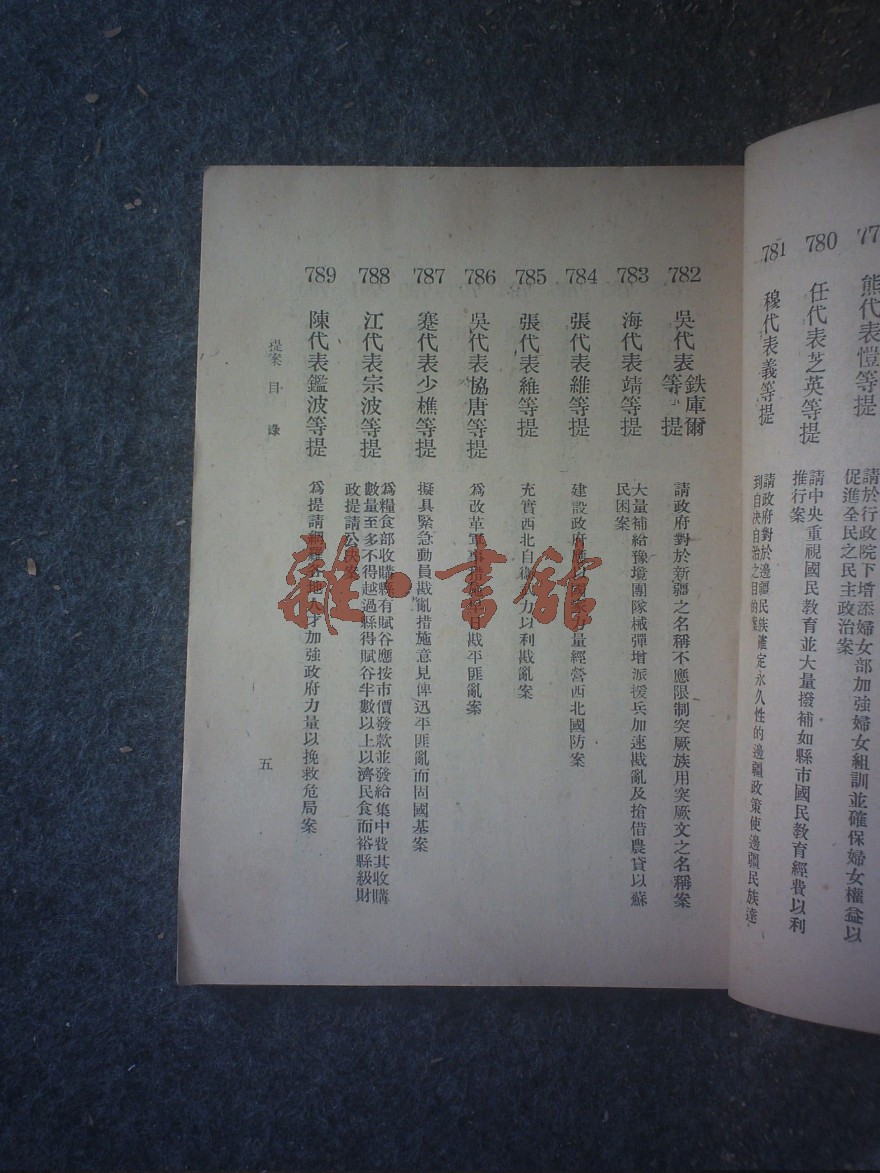 77
熊代表愷等提
請於行政院下增添婦女部加強婦女組訓並確保婦女權益以
促進全民之民主政治案
780
任代表芝英等提
請中央重視國民教育並大量撥補如縣市國民教育經費以利
推行案
781
穆代表義等提
請政府對於邊疆民族確定永久性的邊疆政策使邊疆民族達
到自決自治之目的案
782
吳代表鉄庫爾
等提
請政府對於新疆之名稱不應限制突厥族用突厥文之名稱案
783
海代表靖等提
大量補給豫境團隊械彈增派援兵加速戡亂及搶借農貸以蘇
民困案
784
張代表維等提
建設政府應以國家力量經營西北國防案
785
張代表維等提
充實西北自衛武力以利戡亂案
786
吳代表協唐等提
為改革軍事措施尅日戡平匪亂案
787
蹇代表少樵等提
擬具緊急動員戡亂措施意見俾迅平匪亂而固國基案
788
江代表宗波等提
為糧食部收購縣有賦谷應按市價發款並發給集中費其收購
數量至多不得越過縣得賦谷半數以上以濟民食而裕縣級財
政提請公決案
789
陳代表鑑波等提
為提請網羅各地人才加強政府力量以挽救危局案
提案目錄
五
雜·書館